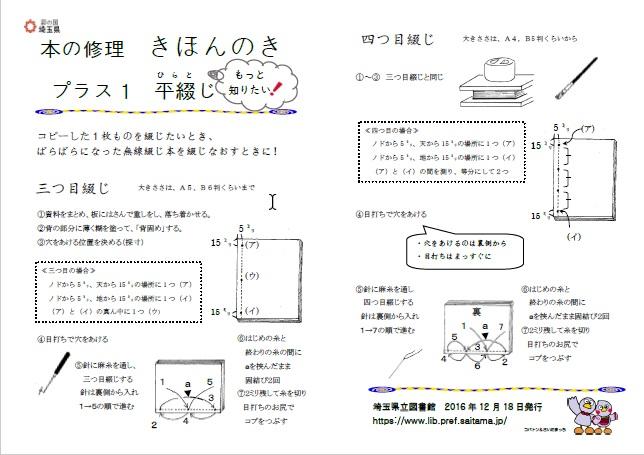 彩の国
埼玉県
本の修理 きほんのき
プラス1 平綴じ
ひらと
もっと
知りたい!
コピーした1枚ものを綴じたいとき、
ばらばらになった無線綴じ本を綴じなおすときに!
三つ目綴じ 大きささは、A5、B6判くらいまで
①資料をまとめ、板にはさんで重しをし、落ち着かせる。
②背の部分に薄く糊を塗って、「背固め」する。
③穴をあける位置を決める(採寸)
≪三つ目の場合≫
ノドから5㍉、天から15㍉の場所に1つ(ア)
ノドから5㍉、地から15㍉の場所に1つ(イ)
(ア)と(イ)の真ん中に1つ(ウ)
5㍉
15㍉
(ア)
(ウ)
15㍉
(イ)
④目打ちで穴をあける
⑤針に麻糸を通し、
三つ目綴じする
針は裏側から入れ
1→5の順で進む
1
a
5
3
7
2
4
6
⑥はじめの糸と
終わりの糸の間に
aを挟んだまま
固結び2回
⑦2ミリ残して糸を切り
目打ちのお尻で
コブをつぶす
四つ目綴じ 大きささは、A4、B5判くらいから
①~③ 三つ目綴じと同じ
≪四つ目の場合≫
ノドから5㍉、天から15㍉の場所に1つ(ア)
ノドから5㍉、地から15㍉の場所に1つ(イ)
(ア)と(イ)の間を測り、等分にして2つ
5㍉
15㍉
(ア)
15㍉
(イ)
④目打ちで穴をあける
・穴をあけるのは裏側から
・目打ちはまっすぐに
⑤針に麻糸を通し
四つ目綴じする
針は裏側から入れ
1→7の順で進む
裏
1
a
7
5
3
2
4
6
⑥はじめの糸と
終わりの糸の間に
aを挟んだまま固結び2回
⑦2ミリ残して糸を切り
目打ちのお尻で
コブをつぶす
埼玉県立図書館 2016年12月18日発行
https://www.lib.pref.saitama.jp/
コバトン&さいたまっち